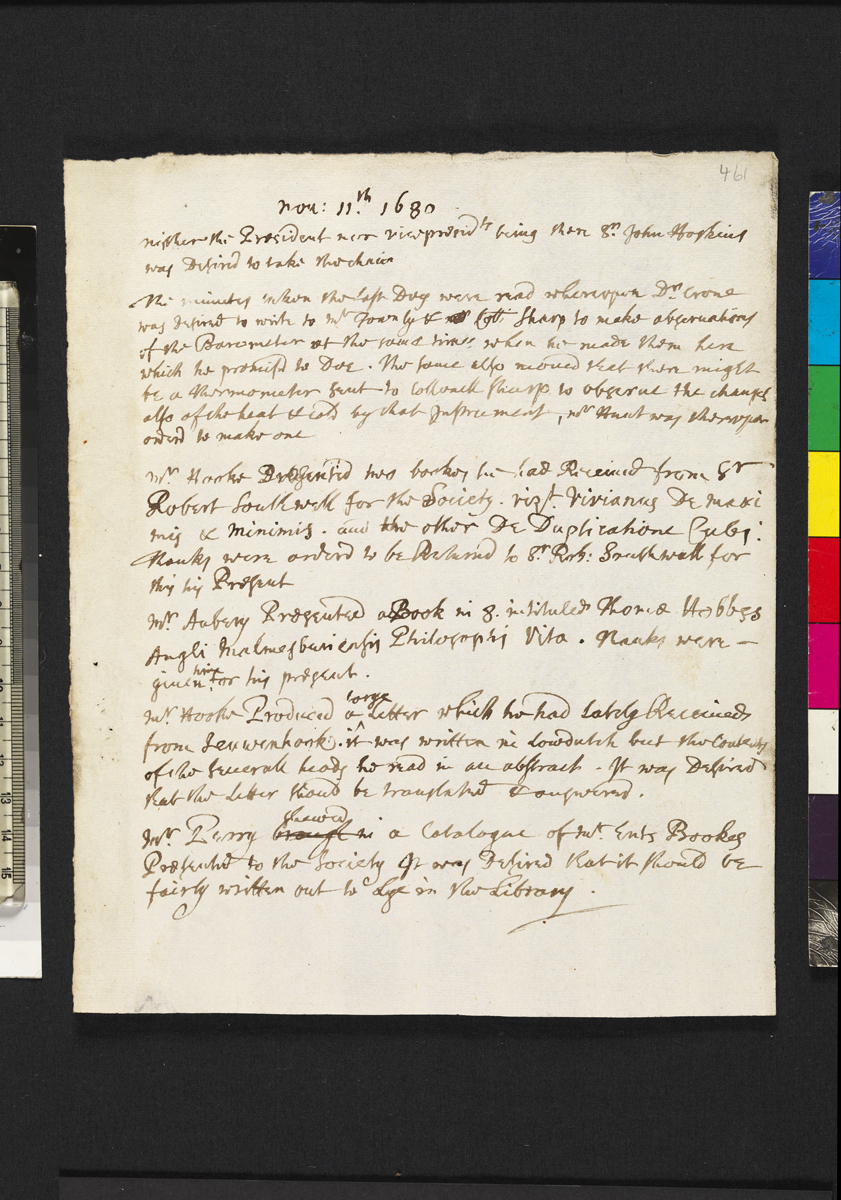 461
nou: 11.th 1680
neither the President nor vicepresidts being there Sr. John Hoskins
was Desired to take the chair
The minutes taken the last Day were read whereupon Dr. Crone
was desired to write to Mr Townly & Coll Sharp to make obseruations
of the Barometer at the same times when he made them here
which he promised to Doe. the same also moued that there might
be a thermometer sent to Collonell sharp to obserue the changes
also of the heat & cold by that Instrument, mr Hunt was thereupon
orderd to make one
Mr. Hooke Presented two bookes he had Receiued from Sr
Robert Southwell for the Society. vizt. Vivianus De maxi
mis & minimis. and the other De Duplicatione Cubi:
thanks were orderd to be Returnd to Sr. Rob: Southwell for
this his Present
Mr. Aubery Presented a Book in 8. intituled Thomæ Hobbes
Angli Malmesburiensis Philosophi Vita. thanks were —
giuen him for his present.
Mr. Hooke Produced a large Letter which he had Lately Receiued
from Leuwenhoek. it was written in Lowdutch but the Contents
of the seuerall heads he read in an abstract. It was Desired
that the Letter should be translated & answered.
Mr. Perry brought in shewed a Catalogue of Mr. Ents Bookes
Presented to the Society It was Desired that it should be
fairly written out to Lye in the Library.